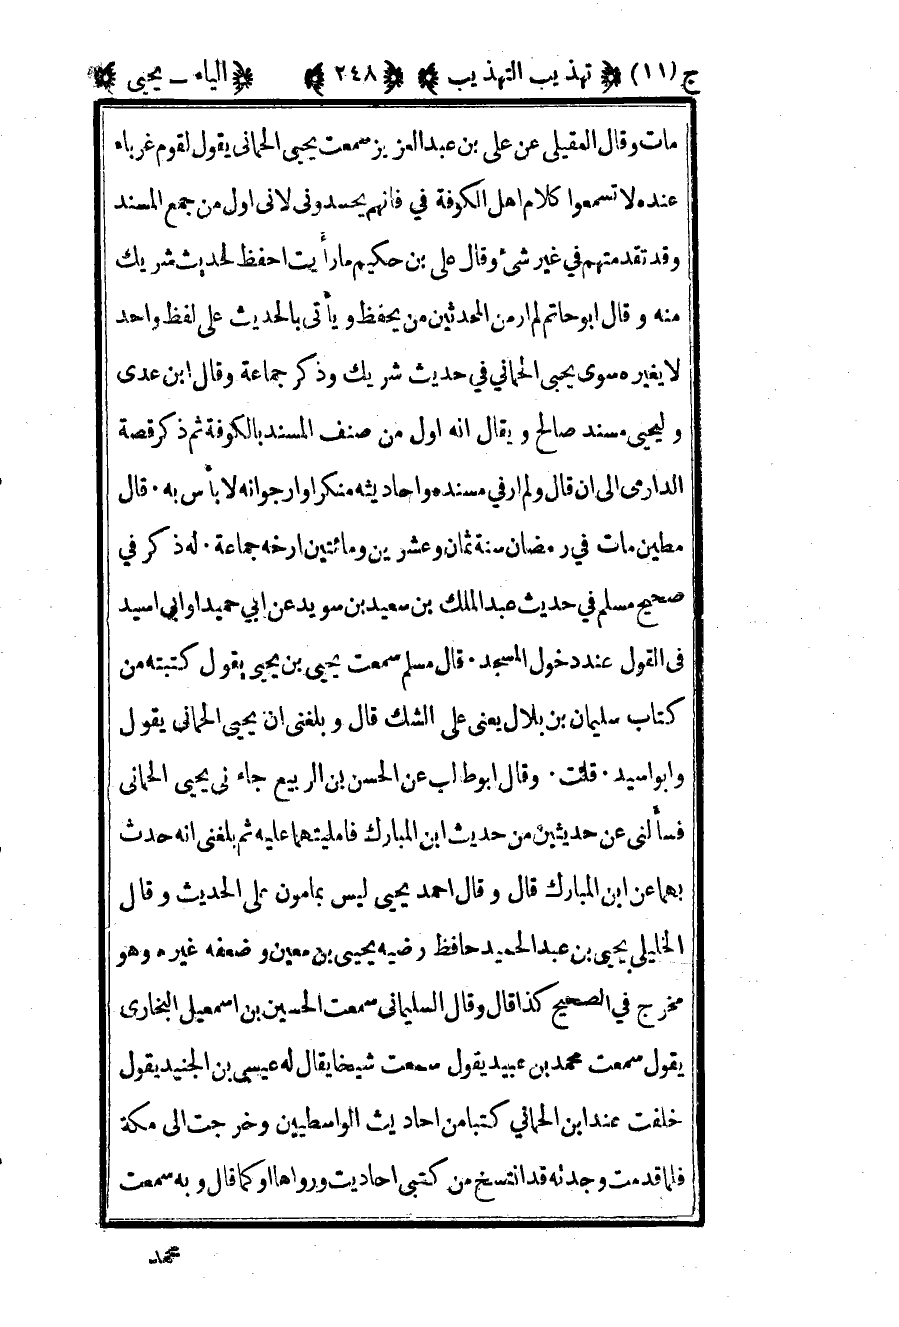 ج (١١) ﴿ تهذيب التهذيب ﴾ ﴿ ٢٤٨ ﴾ ﴿ الياء ــ يحيى ﴾
مات وقال العقيلى عن على بن عبدالعزيز سمعت يحيى الحمانى يقول لقوم غرباء
عنده لا تسمعوا كلام اهل الكوفة في فانهم يحسدونى لانى اول من جمع المسند
وقد تقدمتهم في غير شئ وقال على بن حكيم ما رأيت احفظ لحديث شريك
منه و قال ابو حاتم لم ار من المحدثين من يحفظ و يأتى بالحديث على لفظ واحد
لا يغيره سوى يحيى الحماني في حديث شريك وذكر جماعة وقال ابن عدى
و ليحيى مسند صالح و يقال انه اول من صنف المسند بالكوفة ثم ذكر قصة
الدارمى الى ان قال ولم ار في مسنده واحاديثه منكرا وارجو انه لا بأس به ٠ قال
مطين مات في رمضان سنة ثمان وعشرين ومائتين ارخه جماعة ٠ له ذكر في
صحيح مسلم في حديث عبد الملك بن سعيد بن سويد عن ابي حميد او ابي اسيد
فى القول عند دخول المسجد ٠ قال مسلم سمعت يحيى بن يحيى يقول كتبته من
كتاب سليمان بن بلال يعنى على الشك قال و بلغنى ان يحيى الحمانى يقول
وابو اسيد ٠ قلت ٠ وقال ابو طالب عن الحسن بن الربيع جاء نى يحيى الحمانى
فسألنى عن حديثين من حديث ابن المبارك فامليتهما عليه ثم بلغنى انه حدث
بهما عن ابن المبارك قال و قال احمد يحيى ليس بمامون على الحديث و قال
الخليلى يحيى بن عبد الحميد حافظ رضيه يحيى بن معين و ضعفه غيره وهو
مخرج في الصحيح كذا قال وقال السليمانى سمعت الحسين بن اسمعيل البخارى
يقول سمعت محمد بن عبيد يقول سمعت شيخا يقال له عيسى بن الجنيد يقول
خلفت عند ابن الحماني كتبا من احاديث الواسطيين وخرجت الى مكة
فلما قدمت وجدته قد انتسخ من كتبى احاديث ورواها او كما قال و به سمعت
محمد